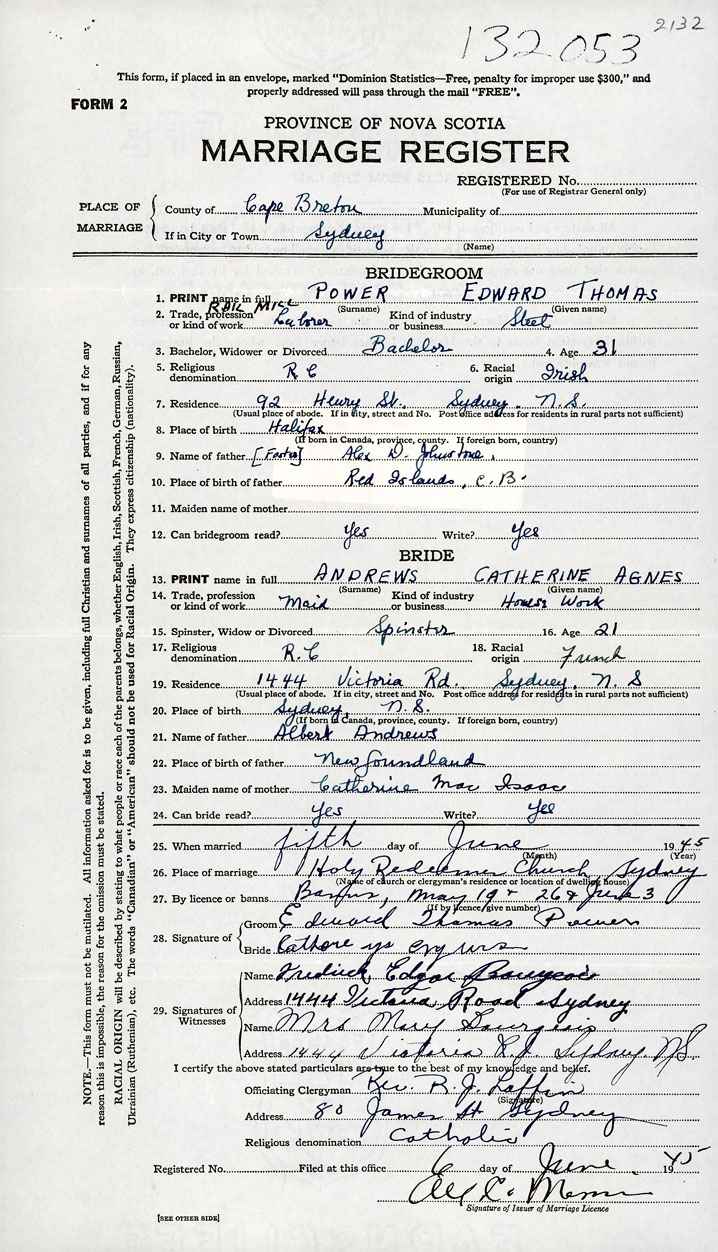 132053 2132
This form, if placed in an envelope, marked “Dominion Statistics—Free, penalty for improper use $300,” and
properly addressed will pass through the mail “FREE”.
FORM 2
PROVINCE OF NOVA SCOTIA
MARRIAGE REGISTER
REGISTERED No.
(For use of Registrar General only)
PLACE OF MARRIAGE
County of Cape Breton Municipality of
If in City or Town Sydney
(Name)
BRIDEGROOM
1. PRINT name in full POWER EDWARD THOMAS
(Surname) (Given name)
RAIL MILL
2. Trade, profession or kind of work Laborer Kind of industry or business Steel
3. Bachelor, Widower or Divorced Bachelor 4. Age 31
5. Religious denomination R C 6. Racial origin Irish
7. Residence 92 Henry St. Sydney, N.S.
(Usual place of abode. If in city, street and No. Post office address for residents in rural parts not sufficient)
8. Place of birth Halifax
(If born in Canada, province, county. If foreign born, country)
9. Name of father [Foster] Alex D. Johnstone.
10. Place of birth of father Red Islands, C.B.
11. Maiden name of mother
12. Can bridegroom read? Yes Write? Yes
BRIDE
13. PRINT name in full ANDREWS CATHERINE AGNES
(Surname) (Given name)
14. Trade, profession or kind of work Maid Kind of industry or business House Work
15. Spinster, Widow or Divorced Spinster 16. Age 21
17. Religious denomination R.C 18. Racial origin French
19. Residence 1444 Victoria Rd. Sydney, N.S
(Usual place of abode. If in city, street and No. Post office address for residents in rural parts not sufficient)
20. Place of birth Sydney, N.S.
(If born in Canada, province, county. If foreign born, country)
21. Name of father Albert Andrews
22. Place of birth of father Newfoundland
23. Maiden name of mother Catherine Mac Isaac
24. Can bride read? Yes Write? Yes
25. When married fifth day of June 1945
(Month) (Year)
26. Place of marriage Holy Redeemer Church, Sydney
(Name of church or clergyman's residence or location of dwelling house)
27. By licence or banns Banns, May 19 - 26 & June 3
(If by licence, give number)
28. Signature of
Groom Edward Thomas Power
Bride
29. Signatures of Witnesses
Name Edgar
Address 1444 Victoria Road Sydney
Name Mrs Mary Bourgeois
Address 1444 Victoria Rd. Sydney N.S.
I certify the above stated particulars are true to the best of my knowledge and belief.
Officiating Clergyman Rev. R. J. Laffin
(Signature)
Address 80 James St Sydney
Religious denomination Catholic
Registered No. Filed at this office 6 day of June 1945
Signature of Issuer of Marriage Licence
[SEE OTHER SIDE]
NOTE.—This form must not be mutilated. All information asked for is to be given, including full Christian and surnames of all parties, and if for any
reason this is impossible, the reason for the omission must be stated.
RACIAL ORIGIN will be described by stating to what people or race each of the parents belongs, whether English, Irish, Scottish, French, German, Russian,
Ukrainian (Ruthenian), etc. The words “Canadian” or “American” should not be used for Racial Origin. They express citizenship (nationality).